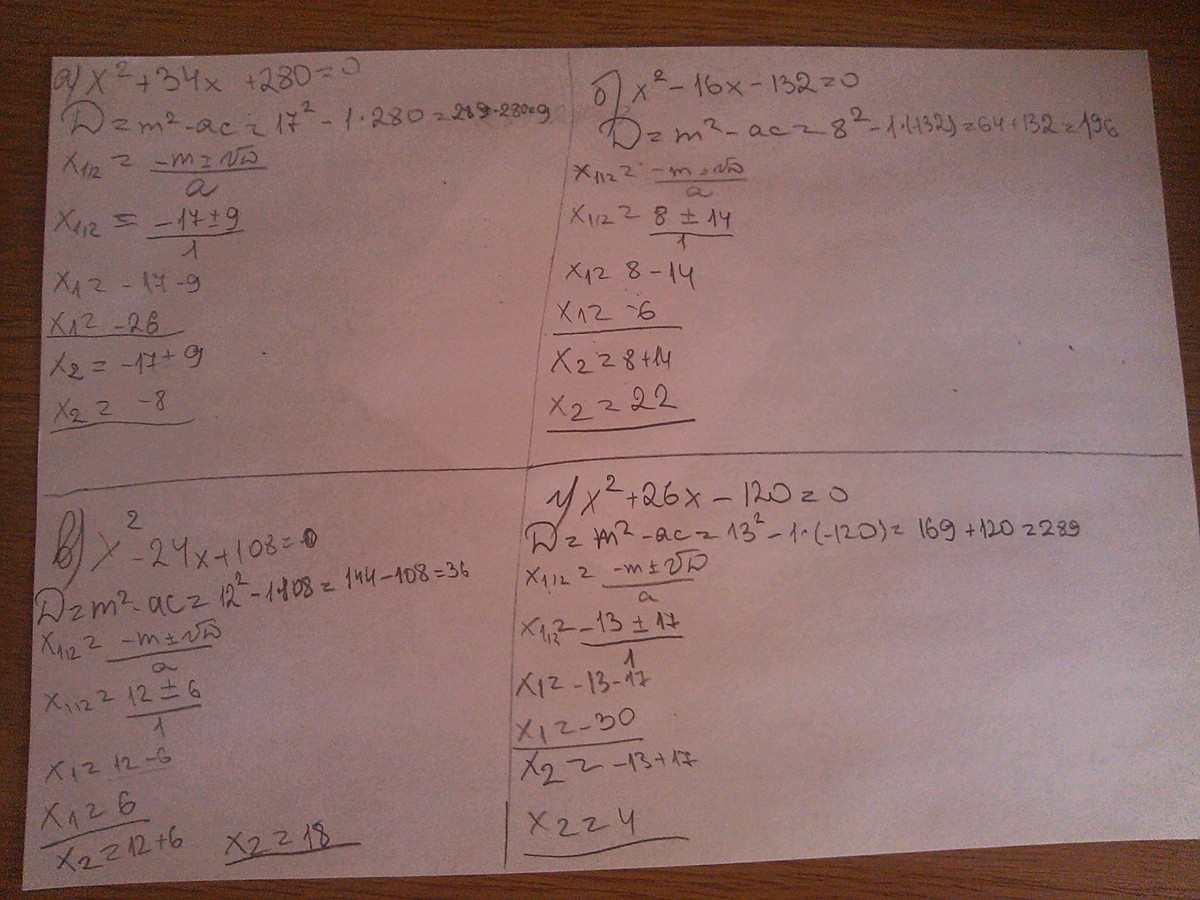 а) x² + 34x + 280 = 0
D = m² - ac = 17² - 1·280 = 289-280=9
x₁,₂ = (-m ± √D)/a
x₁,₂ = (-17 ± 9)/1
x₁ = -17 - 9
x₁ = -26
x₂ = -17 + 9
x₂ = -8
б) x² - 16x - 132 = 0
D = m² - ac = 8² - 1·(-132) = 64 + 132 = 196
x₁,₂ = (-m ± √D)/a
x₁,₂ = (8 ± 14)/1
x₁ = 8 - 14
x₁ = -6
x₂ = 8 + 14
x₂ = 22
в) x² - 24x + 108 = 0
D = m² - ac = 12² - 1·108 = 144 - 108 = 36
x₁,₂ = (-m ± √D)/a
x₁,₂ = (12 ± 6)/1
x₁ = 12 - 6
x₁ = 6
x₂ = 12 + 6 x₂ = 18
г) x² + 26x - 120 = 0
D = m² - ac = 13² - 1·(-120) = 169 + 120 = 289
x₁,₂ = (-m ± √D)/a
x₁,₂ = (-13 ± 17)/1
x₁ = -13 - 17
x₁ = -30
x₂ = -13 + 17
x₂ = 4